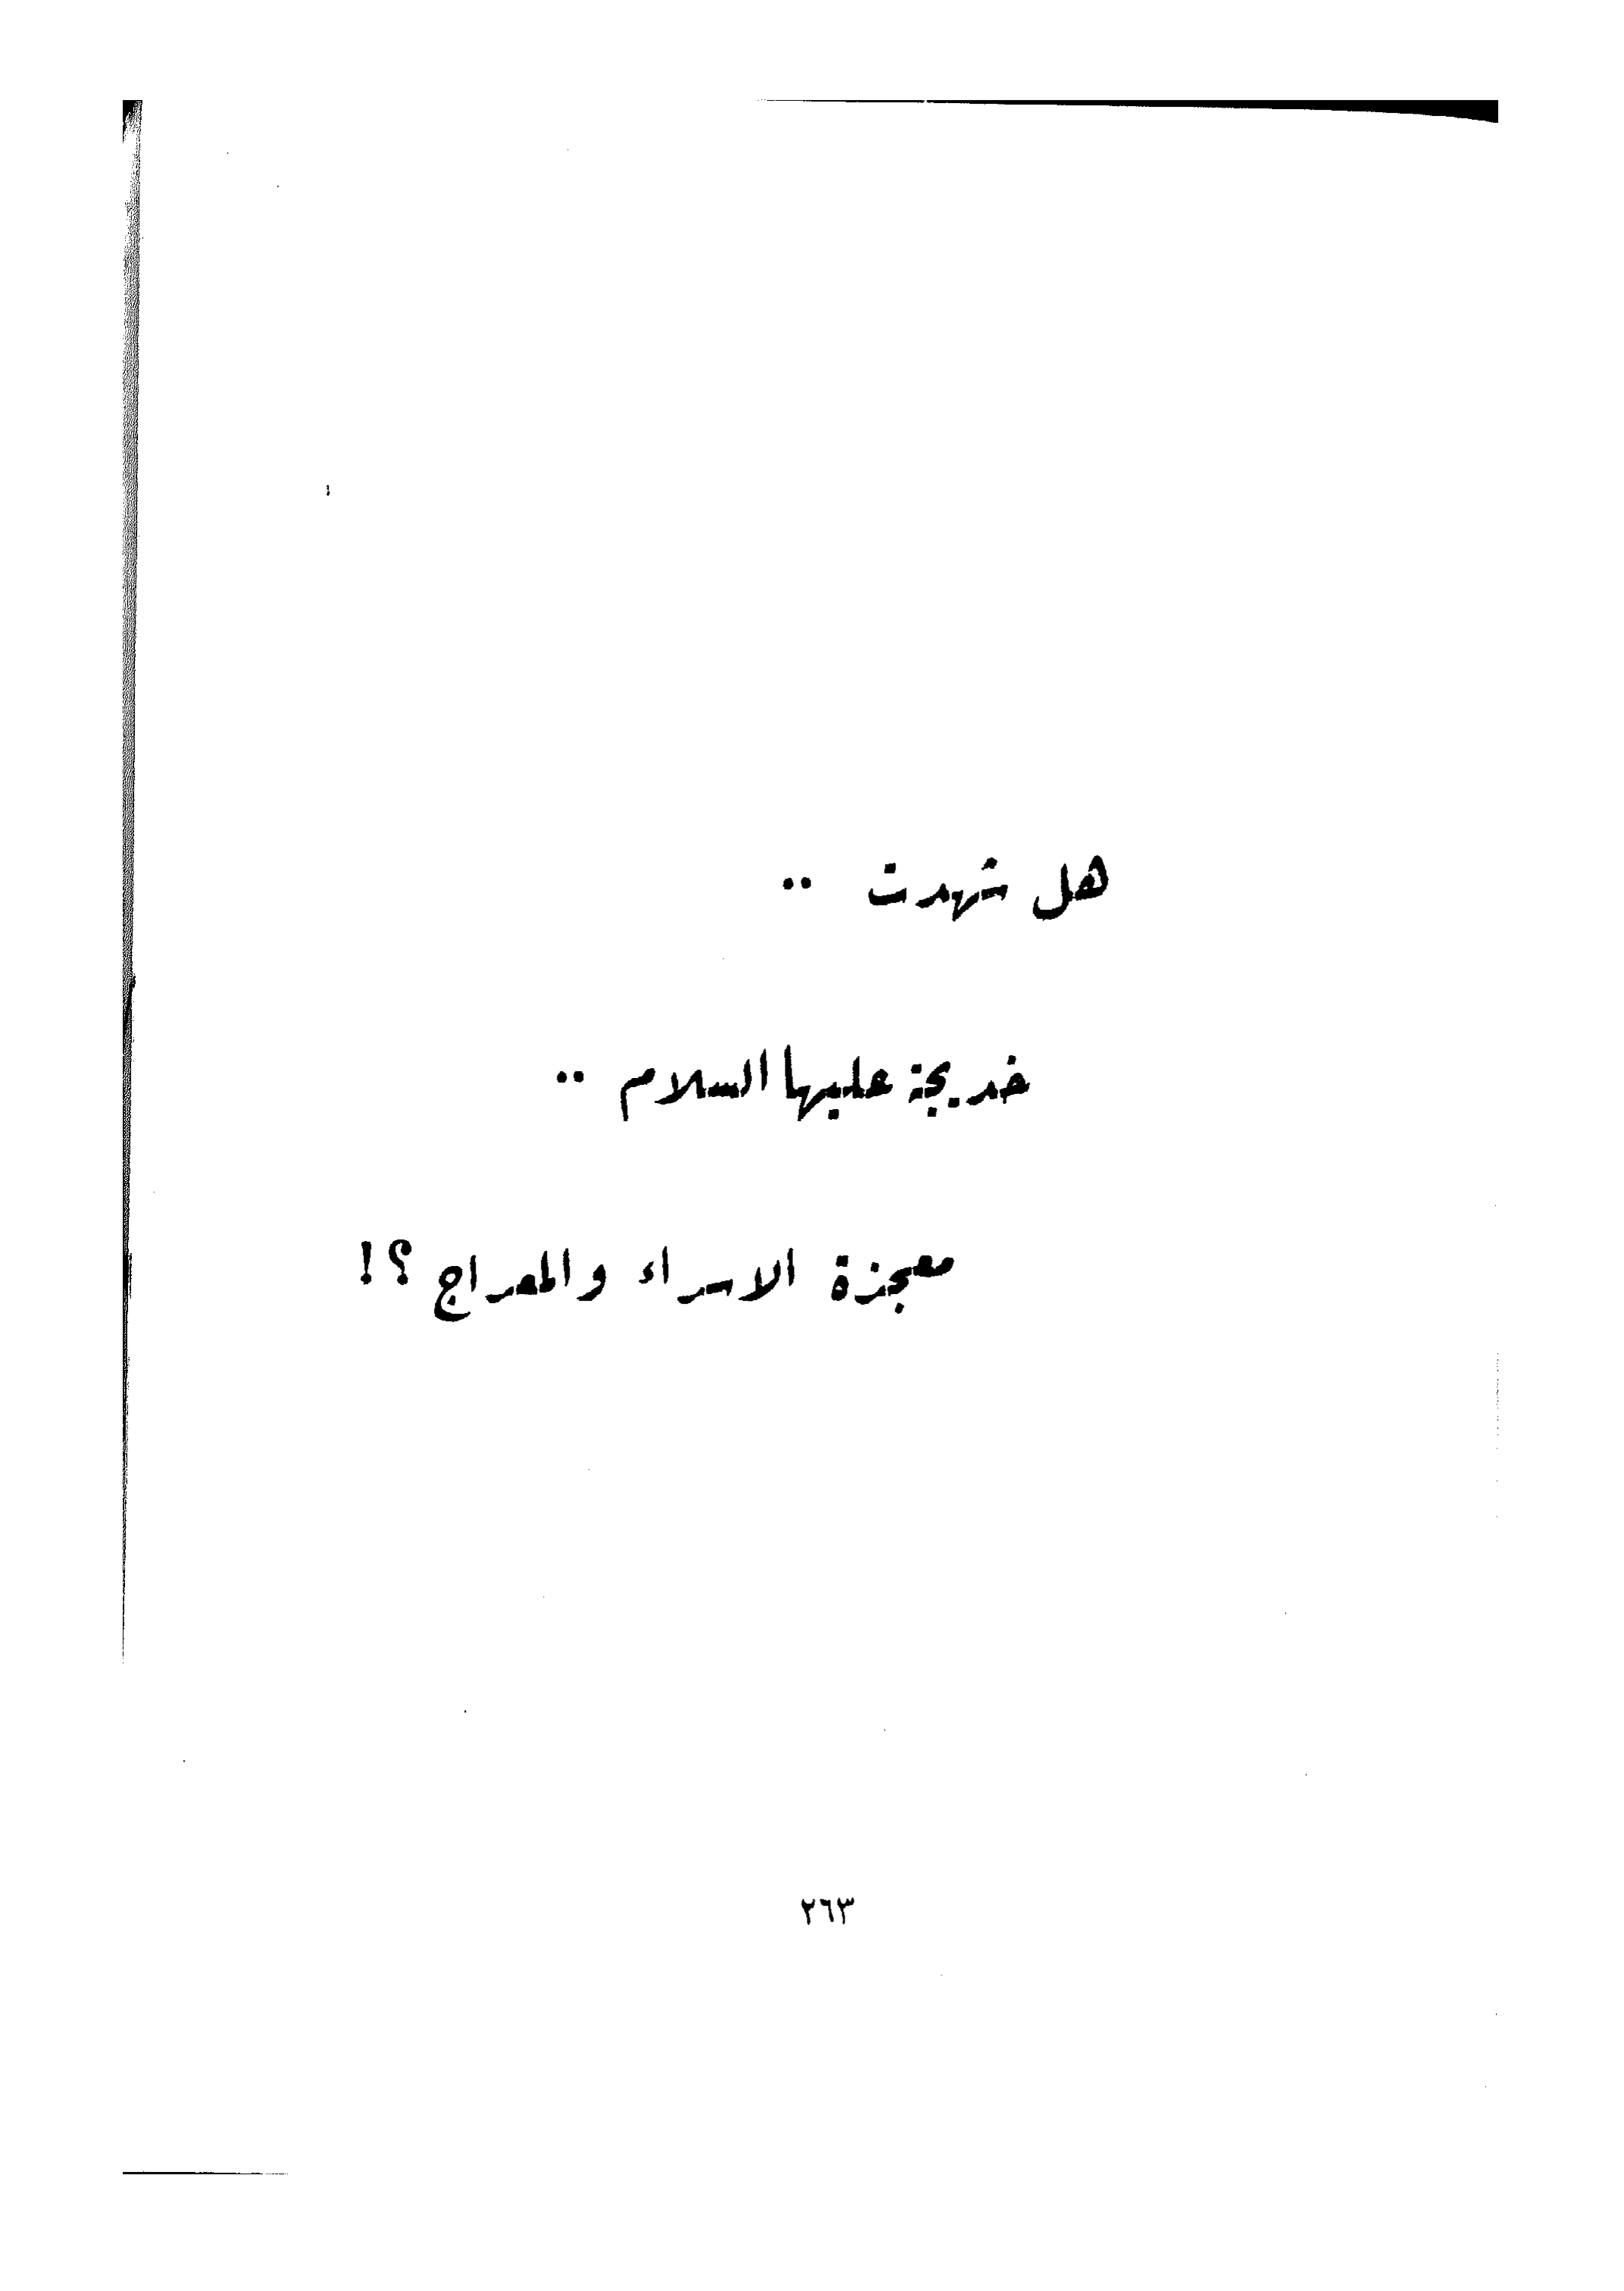 هل شهدت ..
خديجة عليها السلام ..
معجزة الاسراء والمعراج ؟!
٢٦٣